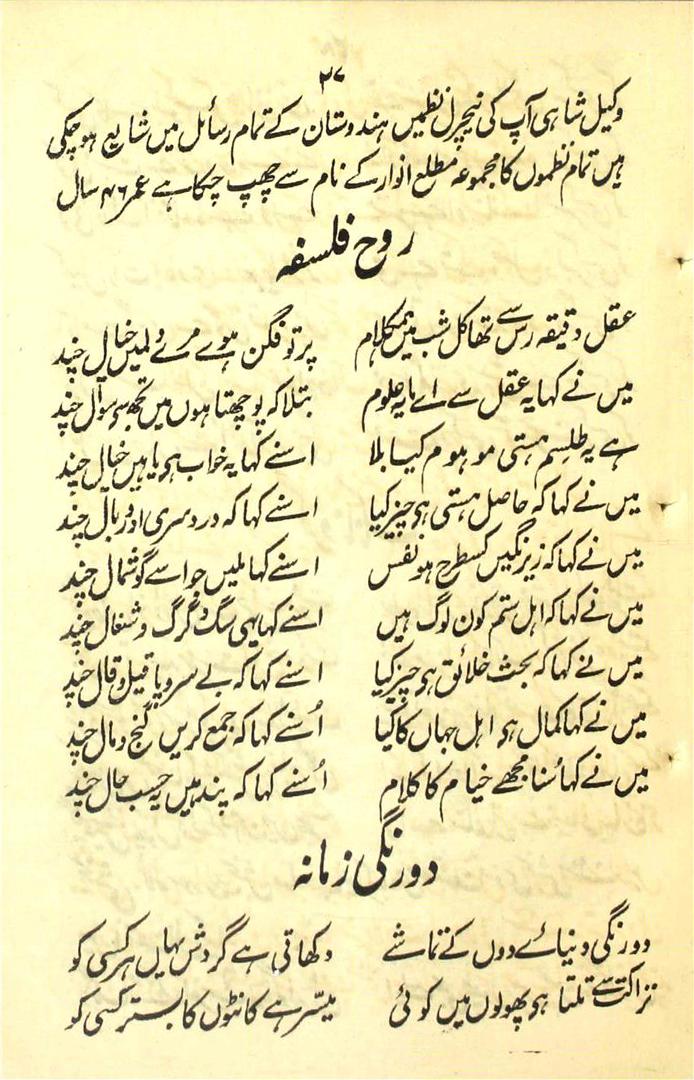 ۲۷
وکیل شاہی آپ کی نیچرل نظمیں ہندوستان کے تمام رسائل میں شایع ہوچکی
ہیں تمام نظموں کا مجموعہ مطلع انوار کے نام سے چھپ چکا ہے عمر ۴۶ سال
روح فلسفہ
عقل دقیقہ رس سے تھا کل شب میں ہمکلام پرتو فگن ہوے مرے دلمیں خیال چند
میں نے کہا یہ عقل سے اے مایہ علوم بتلا کہ پوچھتا ہوں میں تجھ سے سوال چند
ہے یہ طلسم ہستی موہوم کیا بلا اسنے کہا یہ خواب ہی یا ہیں خیال چند
میں نے کہا کہ حاصل ہستی ہی چیز کیا اسنے کہا کہ درد سری اور وبال چند
میں نے کہا کہ زیر نگیں کسطرح ہو نفس اسنے کہا ملیں جو اسے گوشمال چند
میں نے کہا کہ اہل ستم کون لوگ ہیں اسنے کہا یہی سگ و گرگ و شغال چند
میں نے کہا کہ بحث خلائق ہی چیز کیا اسنے کہا کہ بے سروپا قیل و قال چند
میں نے کہا کمال ہی اہل جہاں کا کیا اُسنے کہا کہ جمع کریں گنج و مال چند
میں نے کہا سُنا مجھے خیام کا کلام اُسنے کہا کہ پند ہیں یہ حسب حال چند
دورنگی زمانہ
دورنگی دنیائے دوں کے تماشے دکھاتی ہے گردش یہاں ہر کسی کو
نزاکت سے تلتا ہی پھولوں میں کوئی میسّر ہے کانٹوں کا بستر کسی کو